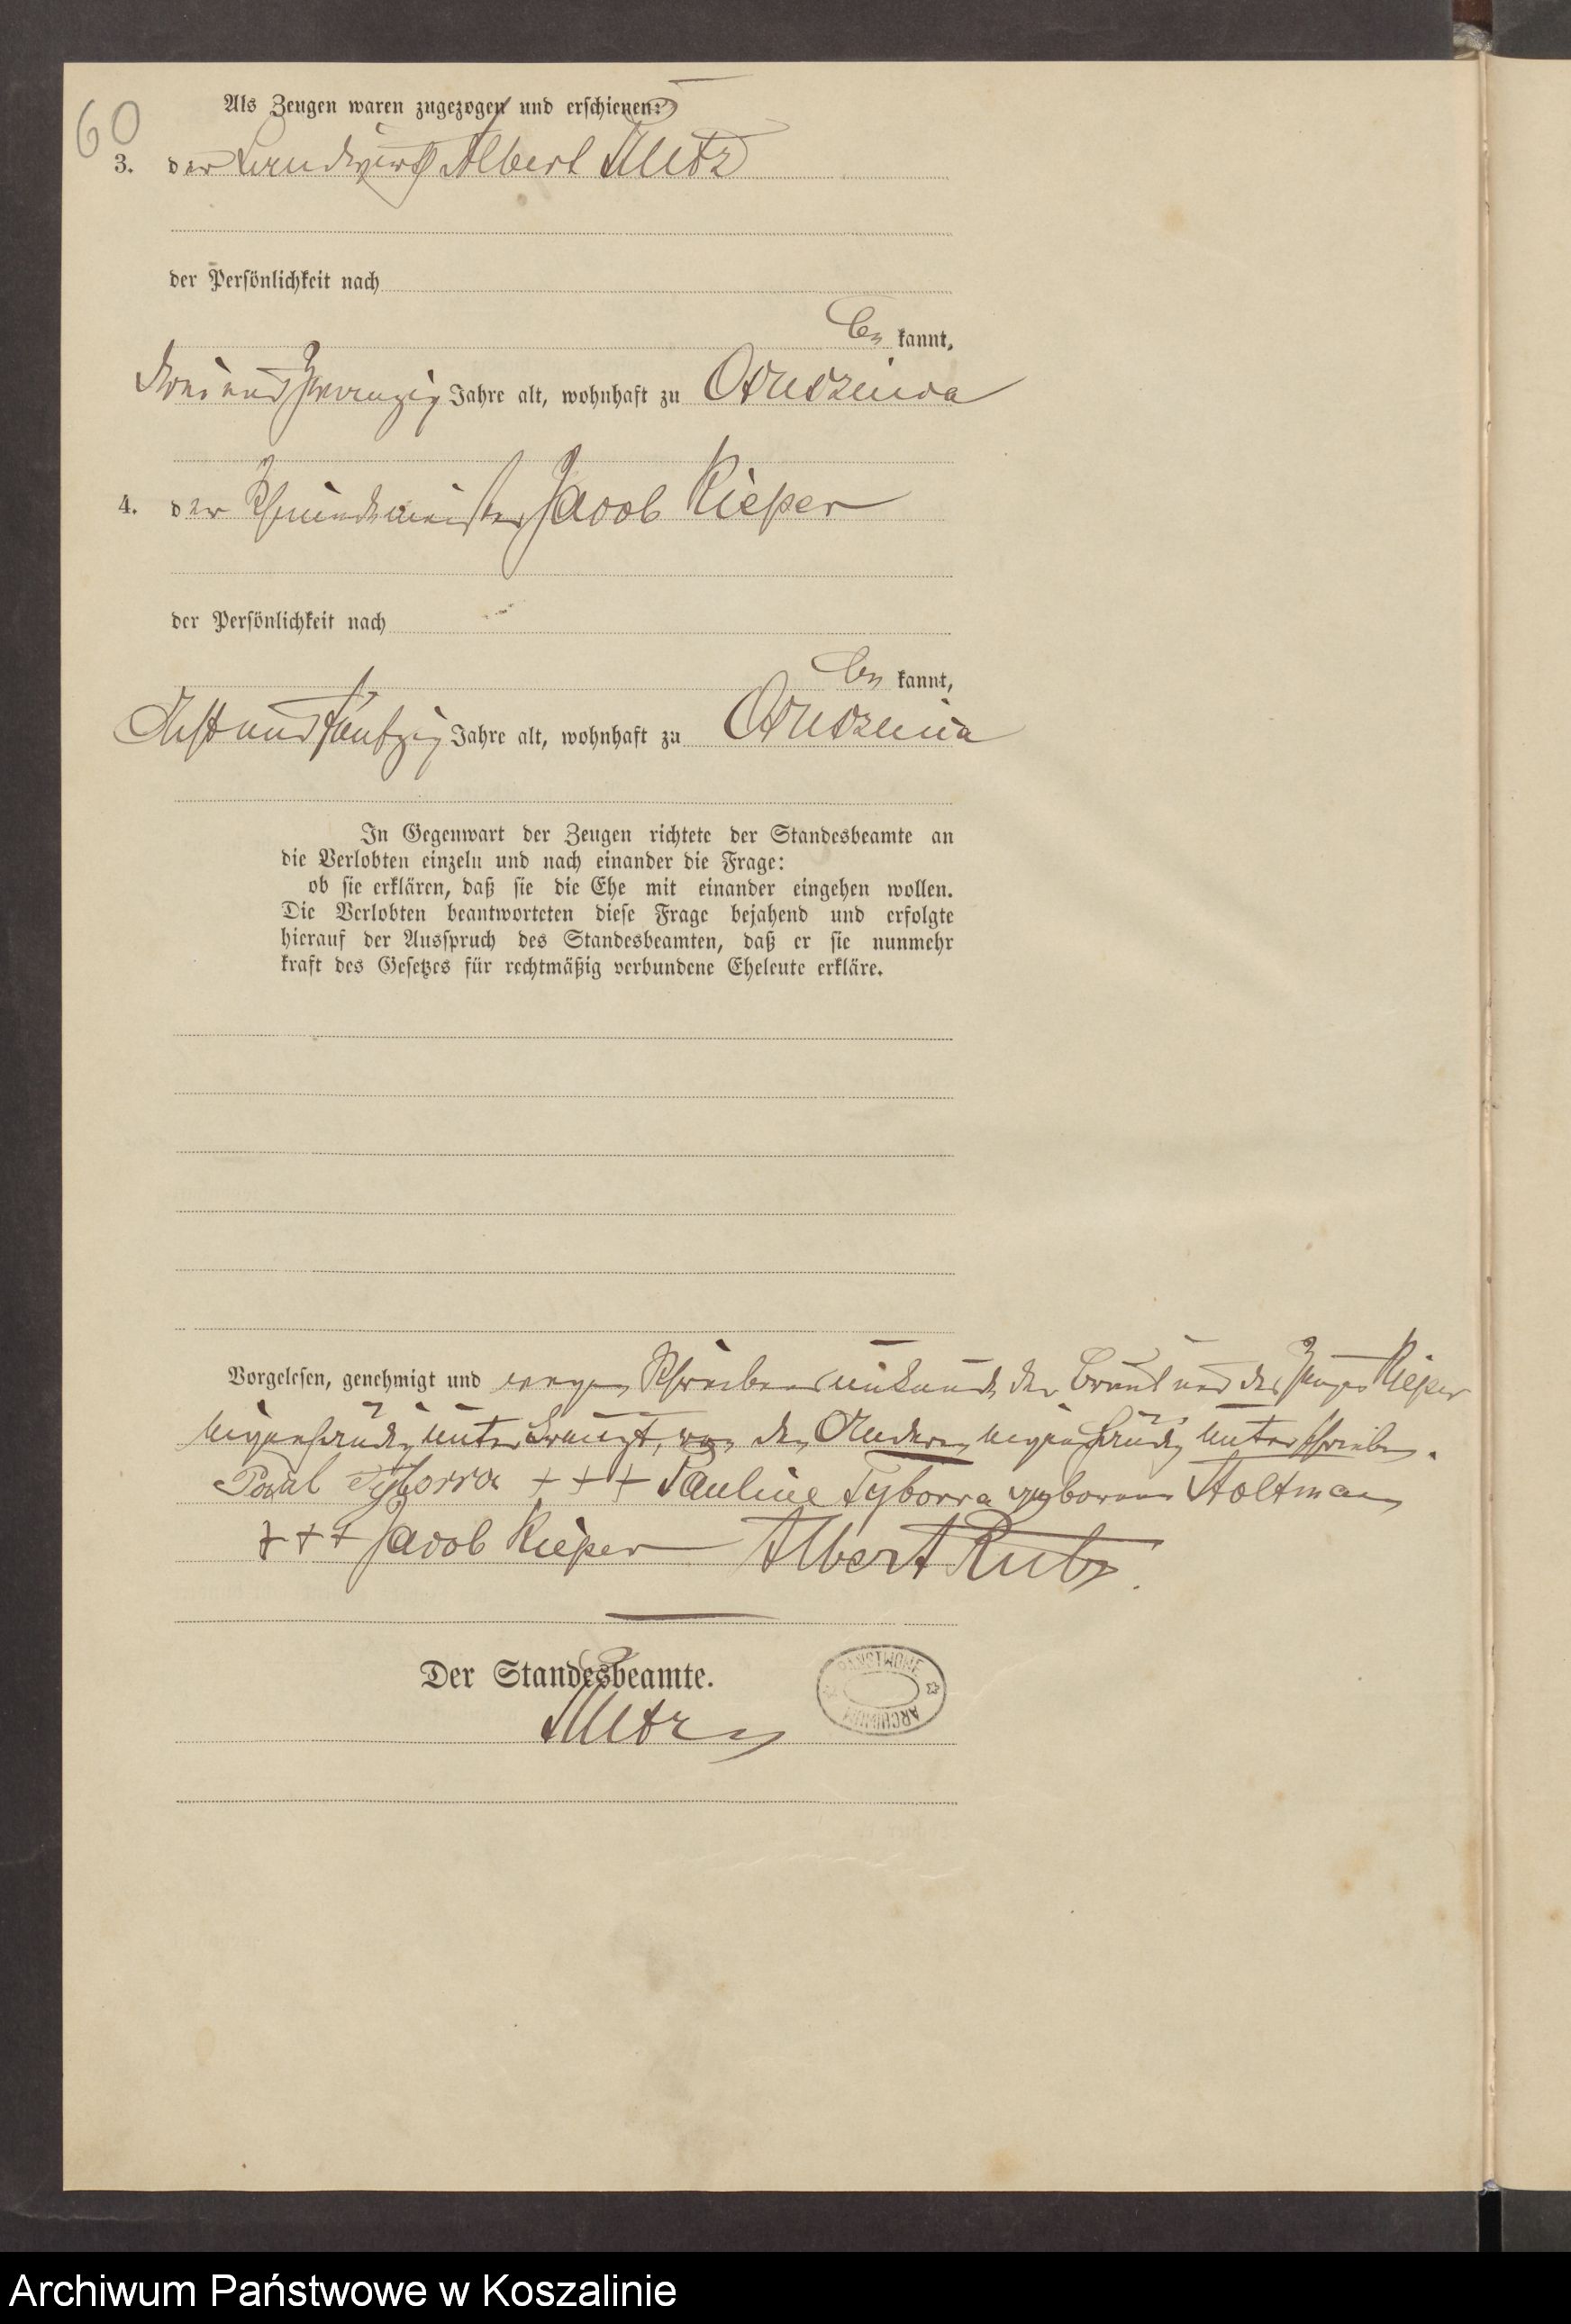 60
Als Zeugen waren zugezogen und erschienen:
3. der Landwirth Albert Rutz
der Persönlichkeit nach
be kannt,
zwanzig Jahre alt, wohnhaft zu
4. der Schmiedemeister Jacob Rieper
der Persönlichkeit nach
be kannt,
Acht und fünfzig Jahre alt, wohnhaft zu
In Gegenwart der Zeugen richtete der Standesbeamte an
die Verlobten einzeln und nach einander die Frage:
ob sie erklären, daß sie die Ehe mit einander eingehen wollen.
Die Verlobten beantworteten diese Frage bejahend und erfolgte
hierauf der Ausspruch des Standesbeamten, daß er sie nunmehr
kraft des Gesetzes für rechtmäßig verbundene Eheleute erkläre.
Vorgelesen, genehmigt und wegen Schreibensunkunde der Braut und des Zeugen Rieper
eigenhändig unterkreuzt, von den Anderen eigenhändig unterschrieben.
Paul Tyborra + + + Pauline Tyborra geborene Stoltmann
+ + + Jacob Rieper Albert Rutz.
Der Standesbeamte.
Rutz
PAŃSTWOWE
ARCHIWUM
Archiwum Państwowe w Koszalinie